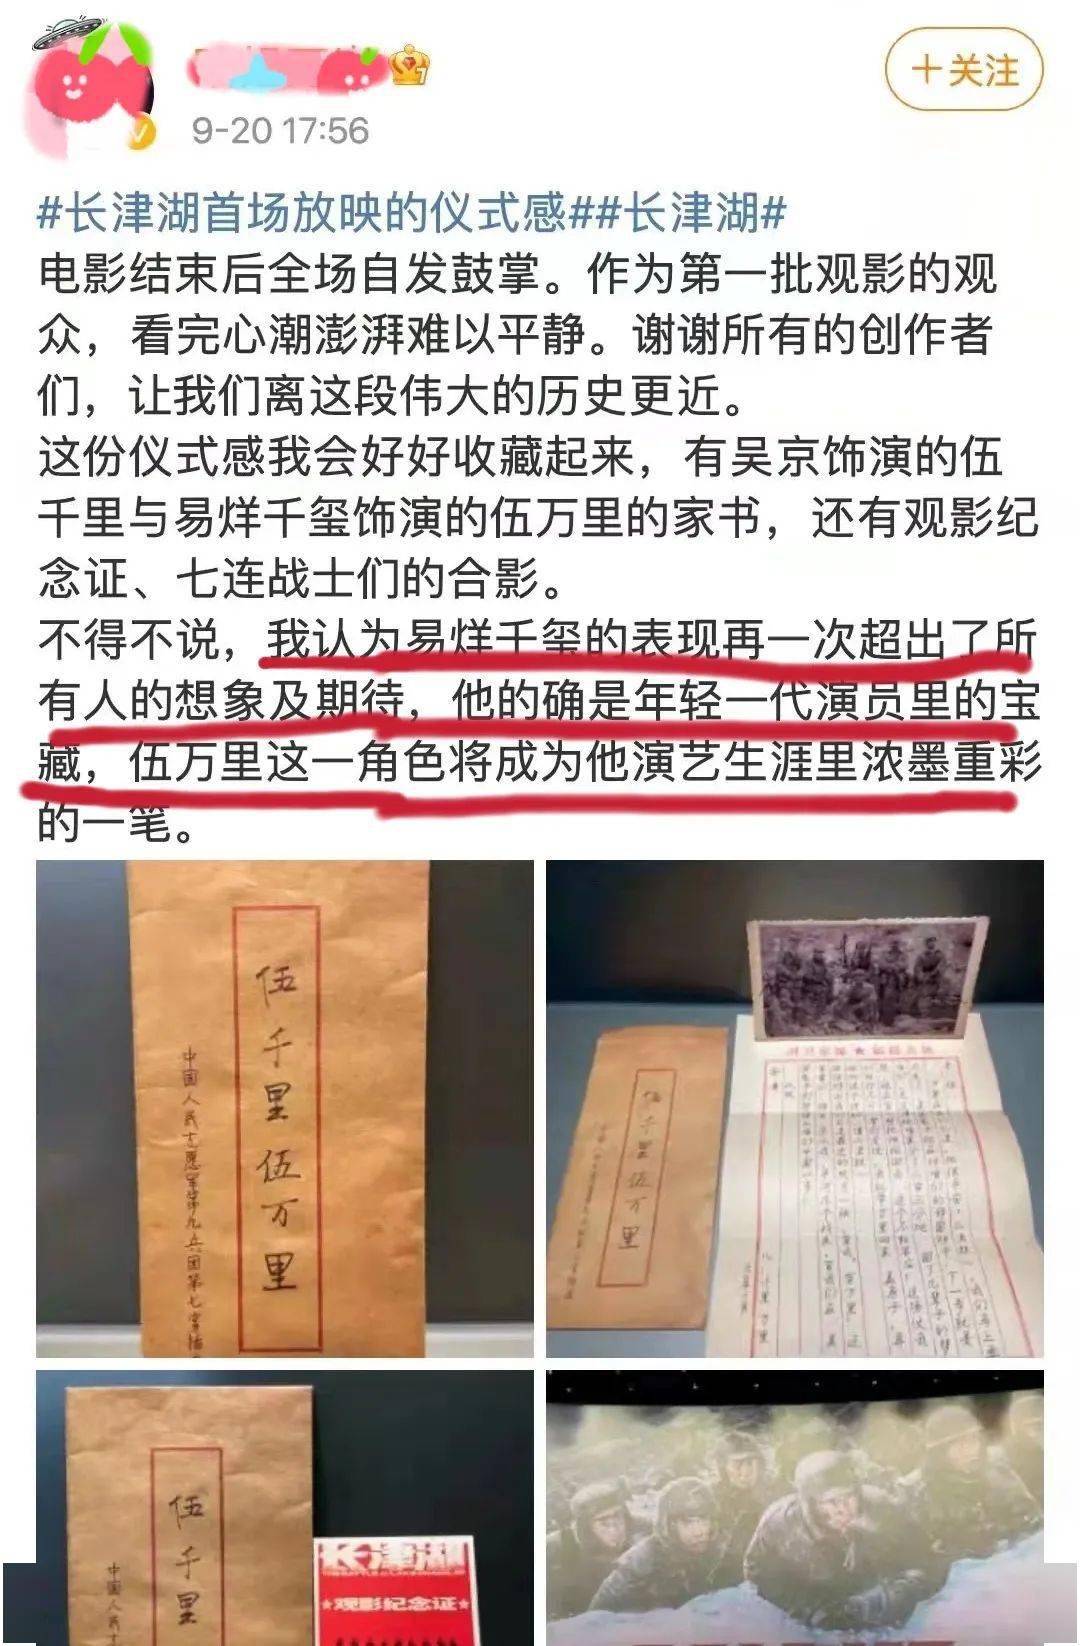 7
V
9-20 17:56
十关注
#长津湖首场放映的仪式感##长津湖#
电影结束后全场自发鼓掌。作为第一批观影的观
众，看完心潮澎湃难以平静。谢谢所有的创作者
们，让我们离这段伟大的历史更近。
这份仪式感我会好好收藏起来，有吴京饰演的伍
千里与易烊千玺饰演的伍万里的家书，还有观影纪
念证、七连战士们的合影。
不得不说，我认为易烊千玺的表现再一次超出了所
有人的想象及期待，他的确是年轻一代演员里的宝
藏，伍万里这一角色将成为他演艺生涯里浓墨重彩
的一笔。
伍千里伍万里
中国人民志愿军第九兵团第七穿插
伍千里伍万里
伍千里
中国人民志
长津湖
★观影纪念证★